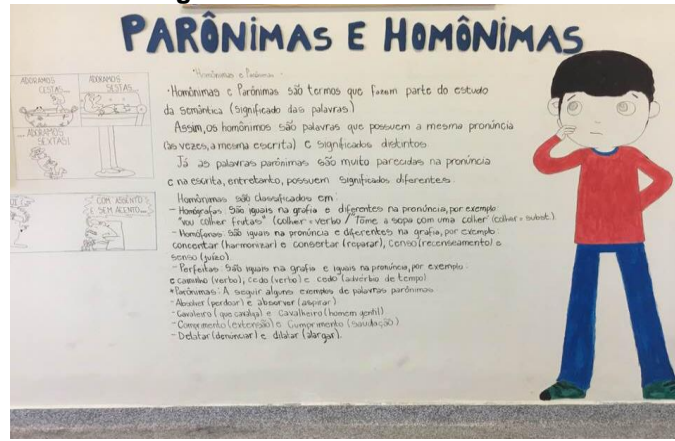 PARÔNIMAS E HOMÔNIMAS
Homônimas e Parônimas
ADORAMOS CESTAS...
ADORAMOS SESTAS...
... ADORAMOS SEXTAS!
COM ASSENTO E SEM ACENTO...
•Homônimas e Parônimas são termos que fazem parte do estudo
da semântica (significado das palavras)
Assim, os homônimos são palavras que possuem a mesma pronúncia
(às vezes, a mesma escrita) e significados distintos.
Já as palavras parônimas são muito parecidas na pronúncia
e na escrita, entretanto, possuem significados diferentes.
Homônimas são classificados em:
- Homógrafas: São iguais na grafia e diferentes na pronúncia, por exemplo:
"vou colher frutas" (colher = verbo / "Tome a sopa com uma colher (colher = subst.).
- Homófonas: São iguais na pronúncia e diferentes na grafia, por exemplo:
concertar (harmonizar) e consertar (reparar), censo (recenseamento) e
senso (juízo).
- Perfeitas: São iguais na grafia e iguais na pronúncia, por exemplo:
e caminho (verbo), cedo (verbo) e cedo (advérbio de tempo)
*Parônimas: A seguir alguns exemplos de palavras parônimas
- Absolver (perdoar) e absorver (aspirar)
- Cavaleiro (que cavalga) e Cavalheiro (homem gentil)
- Comprimento (extensão) e Cumprimento (saudação)
- Delatar (denunciar) e dilatar (alargar).